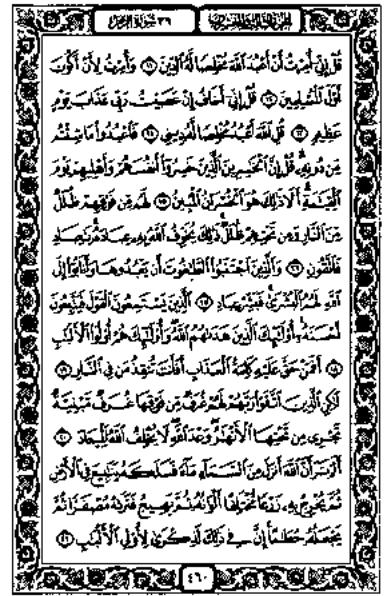 الجزء الثالث والعشرون ٣٩ سورة الزمر
قُلْ إِنِّىٓ أُمِرْتُ أَنْ أَعْبُدَ ٱللَّهَ مُخْلِصًا لَّهُ ٱلدِّينَ ١١ وَأُمِرْتُ لِأَنْ أَكُونَ
أَوَّلَ ٱلْمُسْلِمِينَ ١٢ قُلْ إِنِّىٓ أَخَافُ إِنْ عَصَيْتُ رَبِّى عَذَابَ يَوْمٍ
عَظِيمٍ ١٣ قُلِ ٱللَّهَ أَعْبُدُ مُخْلِصًا لَّهُۥ دِينِى ١٤ فَٱعْبُدُوا۟ مَا شِئْتُم
مِّن دُونِهِۦ قُلْ إِنَّ ٱلْخَٰسِرِينَ ٱلَّذِينَ خَسِرُوٓا۟ أَنفُسَهُمْ وَأَهْلِيهِمْ يَوْمَ
ٱلْقِيَٰمَةِ أَلَا ذَٰلِكَ هُوَ ٱلْخُسْرَانُ ٱلْمُبِينُ ١٥ لَهُم مِّن فَوْقِهِمْ ظُلَلٌ
مِّنَ ٱلنَّارِ وَمِن تَحْتِهِمْ ظُلَلٌ ذَٰلِكَ يُخَوِّفُ ٱللَّهُ بِهِۦ عِبَادَهُۥ يَٰعِبَادِ
فَٱتَّقُونِ ١٦ وَٱلَّذِينَ ٱجْتَنَبُوا۟ ٱلطَّٰغُوتَ أَن يَعْبُدُوهَا وَأَنَابُوٓا۟ إِلَى
ٱللَّهِ لَهُمُ ٱلْبُشْرَىٰ فَبَشِّرْ عِبَادِ ١٧ ٱلَّذِينَ يَسْتَمِعُونَ ٱلْقَوْلَ فَيَتَّبِعُونَ
أَحْسَنَهُۥٓ أُو۟لَٰٓئِكَ ٱلَّذِينَ هَدَىٰهُمُ ٱللَّهُ وَأُو۟لَٰٓئِكَ هُمْ أُو۟لُوا۟ ٱلْأَلْبَٰبِ
١٨ أَفَمَنْ حَقَّ عَلَيْهِ كَلِمَةُ ٱلْعَذَابِ أَفَأَنتَ تُنقِذُ مَن فِى ٱلنَّارِ ١٩
لَٰكِنِ ٱلَّذِينَ ٱتَّقَوْا۟ رَبَّهُمْ لَهُمْ غُرَفٌ مِّن فَوْقِهَا غُرَفٌ مَّبْنِيَّةٌ
تَجْرِى مِن تَحْتِهَا ٱلْأَنْهَٰرُ وَعْدَ ٱللَّهِ لَا يُخْلِفُ ٱللَّهُ ٱلْمِيعَادَ ٢٠
أَلَمْ تَرَ أَنَّ ٱللَّهَ أَنزَلَ مِنَ ٱلسَّمَآءِ مَآءً فَسَلَكَهُۥ يَنَٰبِيعَ فِى ٱلْأَرْضِ
ثُمَّ يُخْرِجُ بِهِۦ زَرْعًا مُّخْتَلِفًا أَلْوَٰنُهُۥ ثُمَّ يَهِيجُ فَتَرَىٰهُ مُصْفَرًّا ثُمَّ
يَجْعَلُهُۥ حُطَٰمًا إِنَّ فِى ذَٰلِكَ لَذِكْرَىٰ لِأُو۟لِى ٱلْأَلْبَٰبِ ٢١
٤٦٠